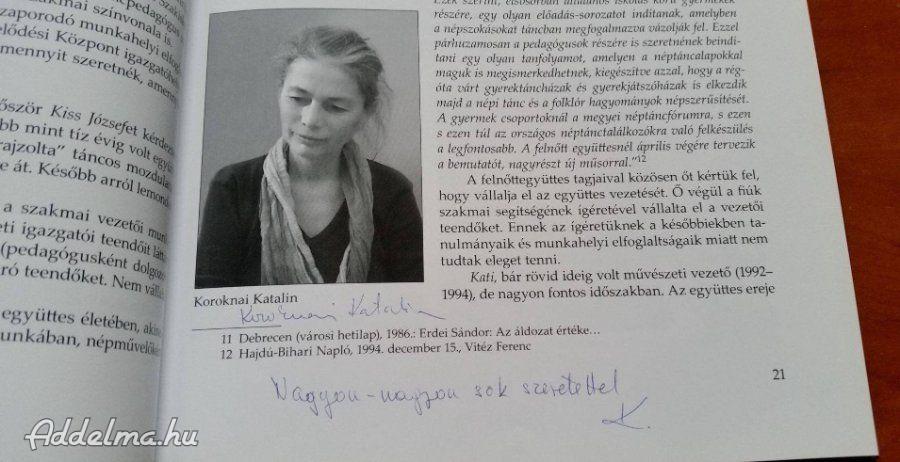 npedagógus
szakmai színvonala is.
zaporodó munkahelyi elfog
elődési Központ igazgatóhely
mennyit szeretnék, amenn
őször Kiss Józsefet kérdez
bb mint tíz évig volt együ
rajzolta" táncos mozdula
e át. Később arról lemond
a szakmai vezetői mun
eti igazgatói teendőit látt
(pedagógusként dolgozo
ró teendőket. Nem válla
együttes életében, akine
unkában, népművelőké
Ezek szerint, elsősorban általános iskolás korú gyermekek
részére, egy olyan előadás-sorozatot indítanak, amelyben
a népszokásokat táncban megfogalmazva vázolják fel. Ezzel
párhuzamosan a pedagógusok részére is szeretnének beindí-
tani egy olyan tanfolyamot, amelyen a néptáncalapokkal
maguk is megismerkedhetnek, kiegészítve azzal, hogy a rég-
óta várt gyerektáncházak és gyerekjátszóházak is elkezdik
majd a népi tánc és a folklór hagyományok népszerűsítését.
A gyermek csoportoknál a megyei néptáncfórumra, s ezen
s ezen túl az országos néptánctalálkozókra való felkészülés
a legfontosabb. A felnőtt együttesnél április végére tervezik
a bemutatót, nagyrészt új műsorral."12
A felnőttegyüttes tagjaival közösen őt kértük fel,
hogy vállalja el az együttes vezetését. Ő végül a fiúk
szakmai segítségének ígéretével vállalta el a vezetői
teendőket. Ennek az ígéretüknek a későbbiekben ta-
nulmányaik és munkahelyi elfoglaltságaik miatt nem
tudtak eleget tenni.
Kati, bár rövid ideig volt művészeti vezető (1992–
1994), de nagyon fontos időszakban. Az együttes ereje
Koroknai Katalin
Koroknai Katalin
11 Debrecen (városi hetilap), 1986.: Erdei Sándor: Az áldozat értéke…
12 Hajdú-Bihari Napló, 1994. december 15., Vitéz Ferenc
21
Nagyon-nagyon sok szeretettel
K.
Addelma.hu